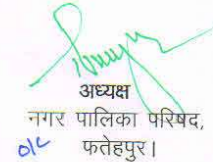 अध्यक्ष
नगर पालिका परिषद,
o/c फतेहपुर।